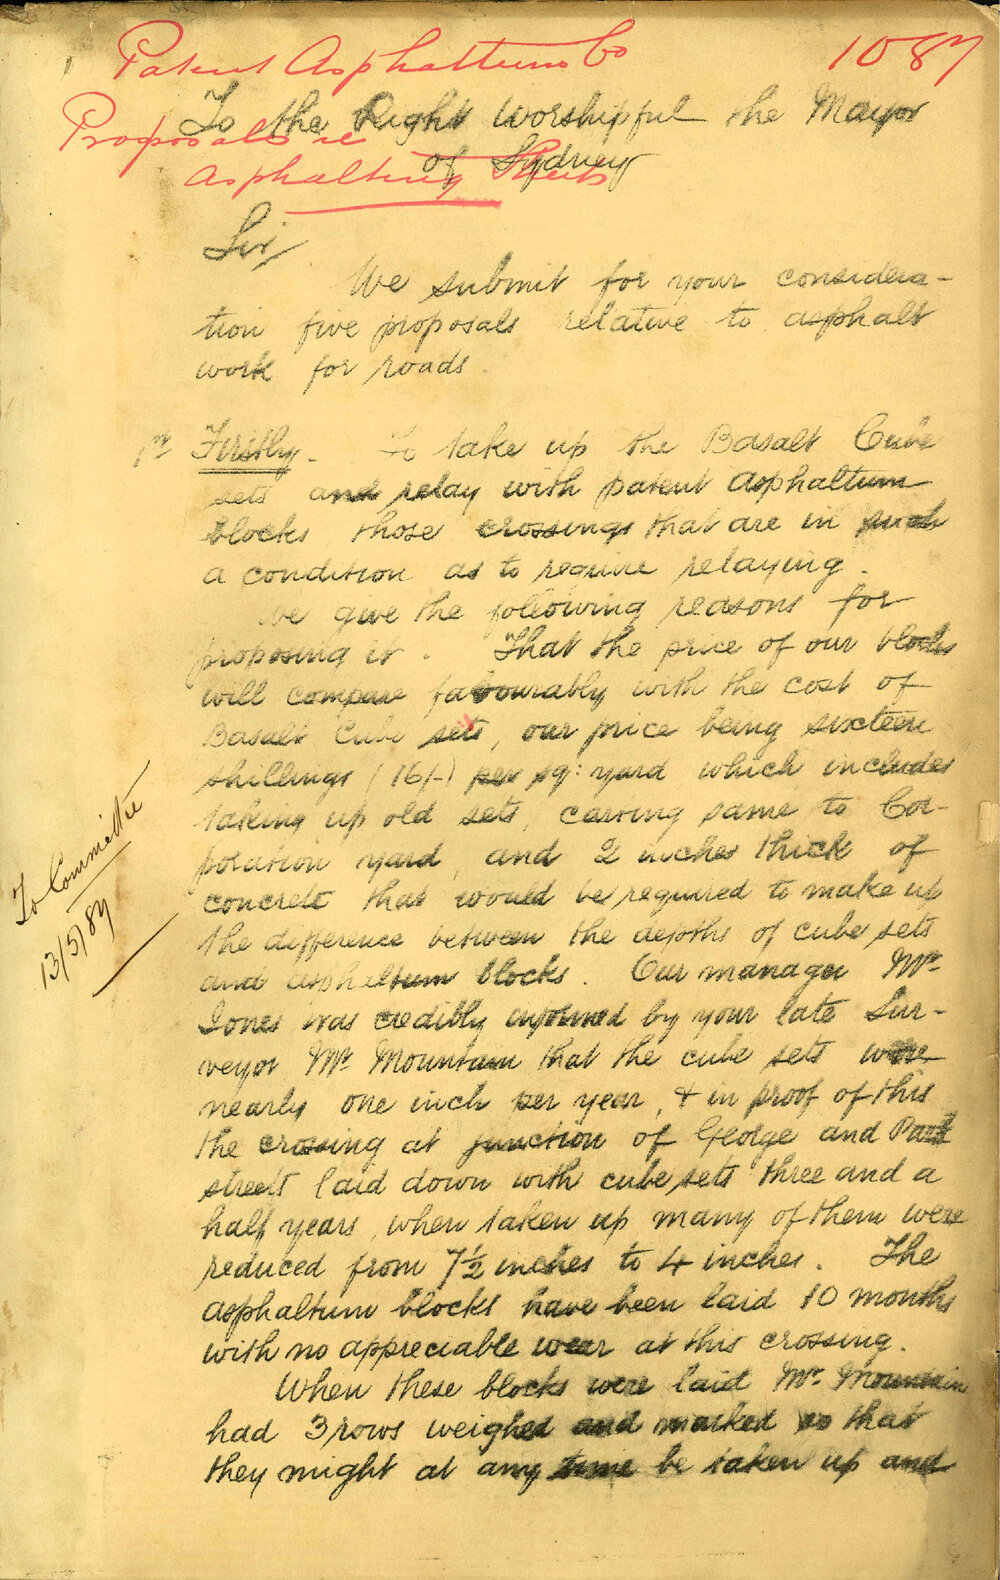 Patent Asphaltum Co
1087
To the Right Worshipful the Mayor
Proposals re
of Sydney
Asphalting Streets
Sir
We submit for your considera-
tion five proposals relative to asphalt
work for roads.
1st Firstly. To take up the Basalt Cube
sets and relay with patent Asphaltum
blocks those crossings that are in such
a condition as to require relaying.
We give the following reasons for
proposing it. That the price of our blocks
will compare favourably with the cost of
Basalt Cube sets, our price being sixteen
shillings (16/-) per sq: yard which includes
taking up old sets, carting same to Cor-
poration yard, and 2 inches thick of
concrete that would be required to make up
the difference between the depths of cube sets
and asphaltum blocks. Our manager Mr
Jones was credibly informed by your late Sur-
veyor Mr Mountain that the cube sets wore
nearly one inch per year, & in proof of this
the crossing at junction of George and Park
streets laid down with cube sets three and a
half years, when taken up many of them were
reduced from 7½ inches to 4 inches. The
asphaltum blocks have been laid 10 months
with no appreciable wear at this crossing.
When these blocks were laid Mr Mountain
had 3 rows weighed and marked so that
they might at any time be taken up and
To Committee
13/5/87